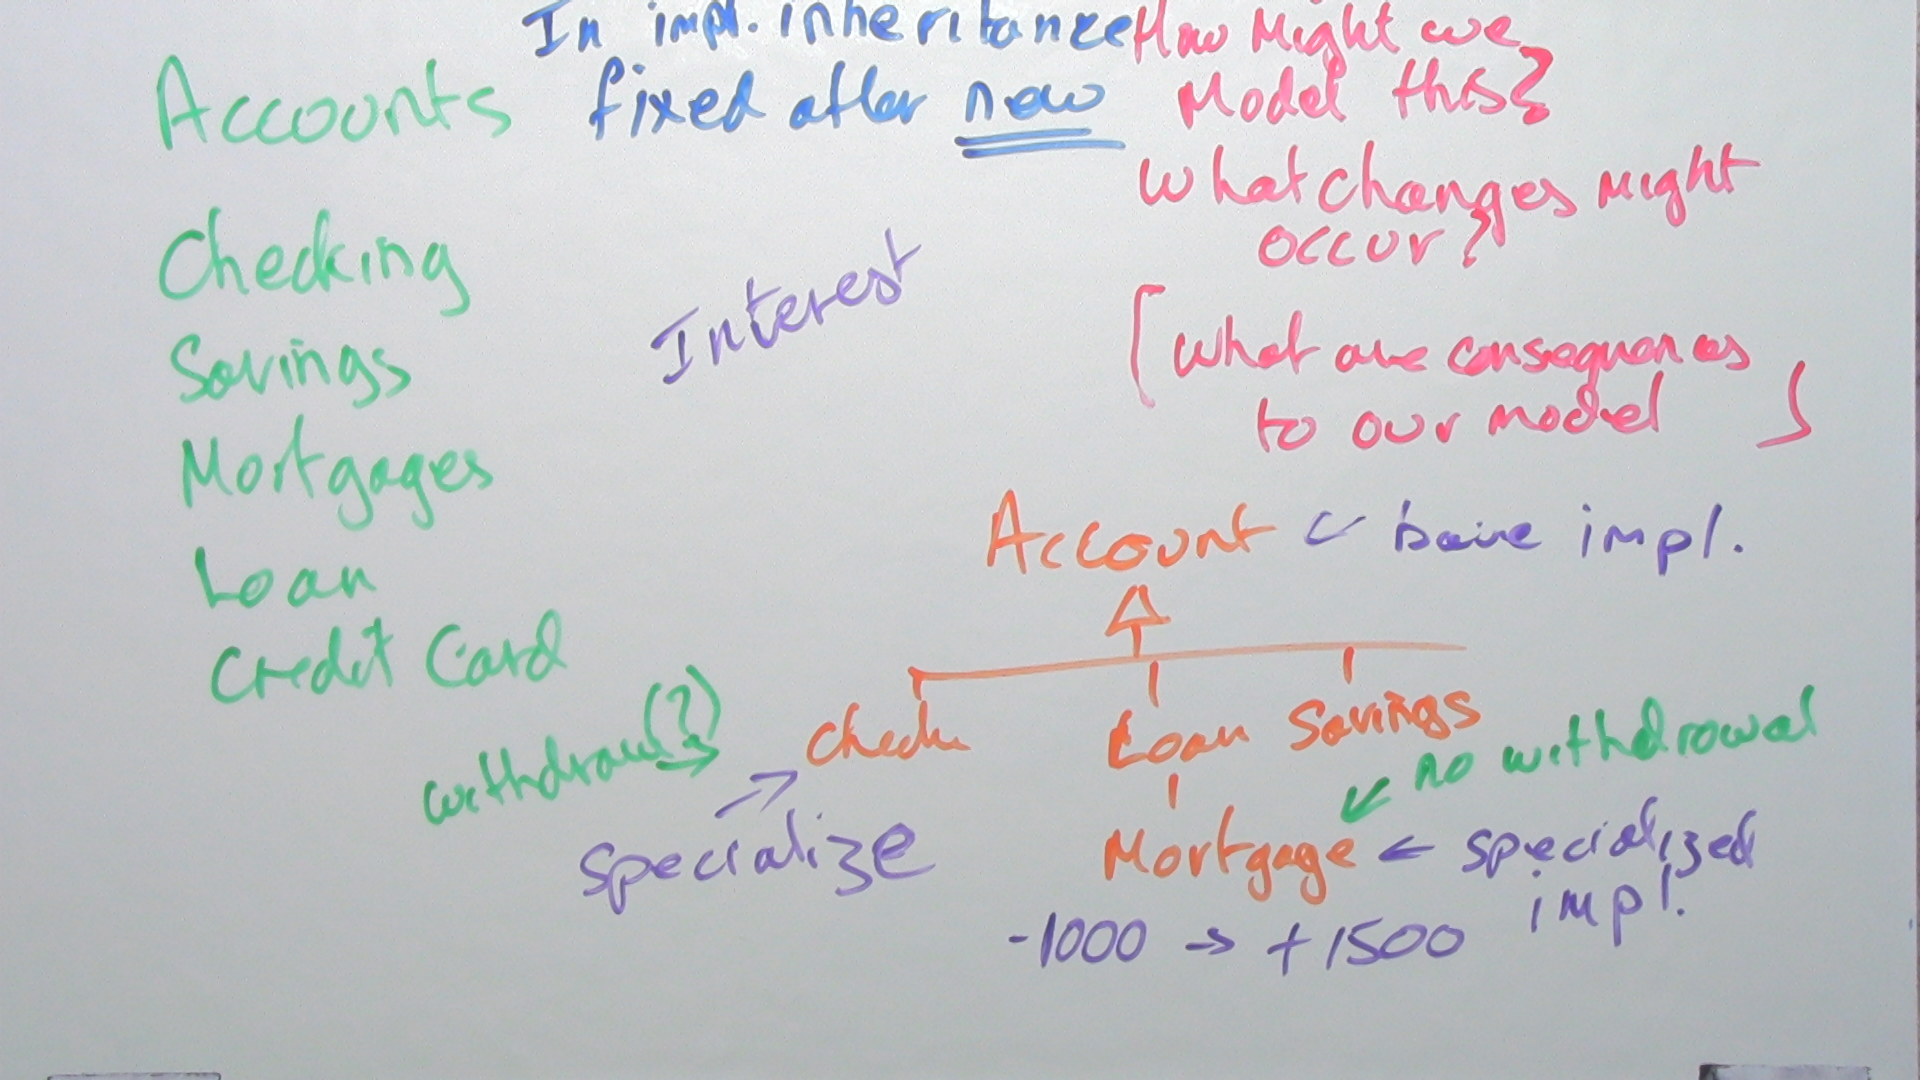 In impl. inheritance
fixed after new
How Might we
Model this?
What changes might
occur?
[What are consequences
to our model]
Accounts
Checking
Savings
Mortgages
Loan
Credit Card
Interest
Account ← base impl.
Check Loan Savings
withdraw(?) →
specialize
no withdrawal
Mortgage ← specialized
impl.
-1000 → +1500